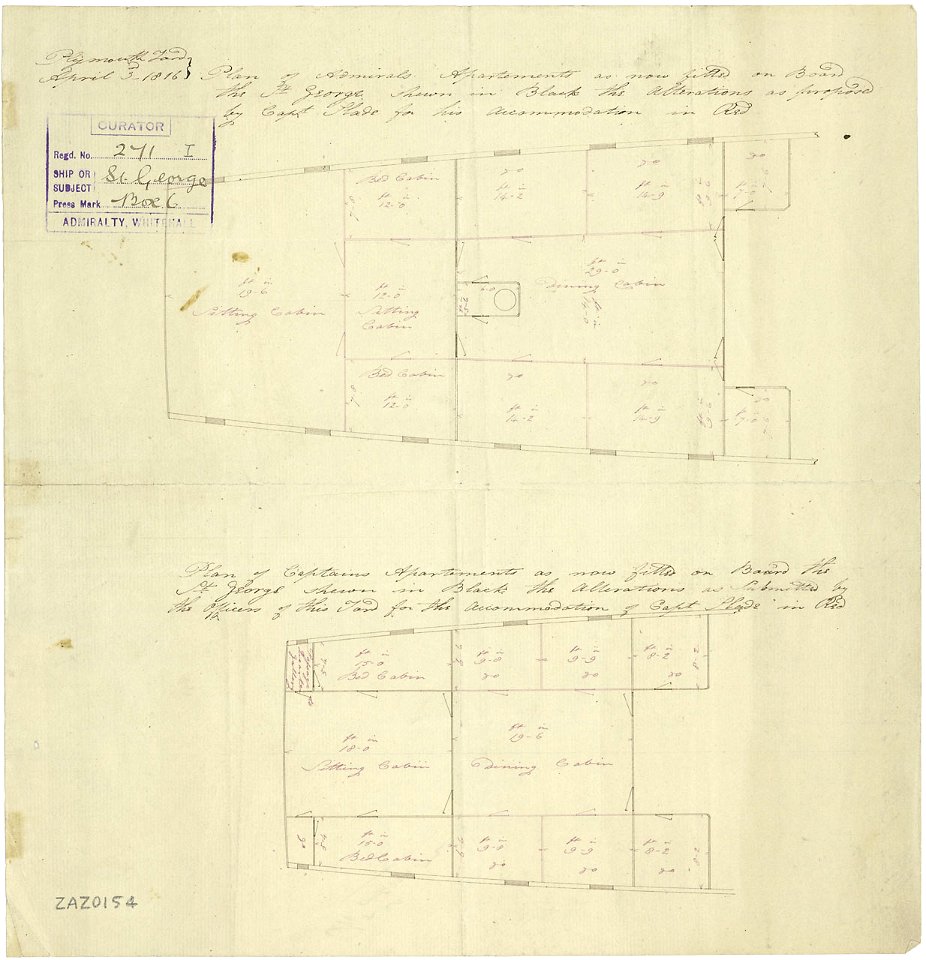 Plymouth Yard
April 3 1816
Plan of Admirals Apartements as now fitted on Board
the St George shewn in Black the Alterations as proposed
by Capt Slade for his Accommodation in Red
CURATOR
Regd. No. 271 I
SHIP OR SUBJECT St. George
Press Mark Box 6
ADMIRALTY, WHITEHALL
Bed Cabin
ft in
12-0
do
ft in
14-2
do
ft in
14-9
do
7-0
ft in
19-6
Sitting Cabin
ft in
12-0
Sitting
Cabin
ft in
29-0
Dining Cabin
Bed Cabin
ft in
12-0
do
ft in
14-2
do
ft in
14-9
9-6
do
7-0
Plan of Captains Apartements as now fitted on Board the
St George shewn in Black the Alterations as Submitted by
the Officers of this Yard for the Accommodation of Capt Slade in Red
ft in
15-0
Bed Cabin
ft in
9-0
do
ft in
9-9
do
ft in
8-2
do
8-2
ft in
18-0
Sitting Cabin
ft in
19-6
Dining Cabin
do
ft in
15-0
Bed Cabin
ft in
9-0
do
ft in
9-9
do
ft in
8-2
do
8-2
ZAZ0154